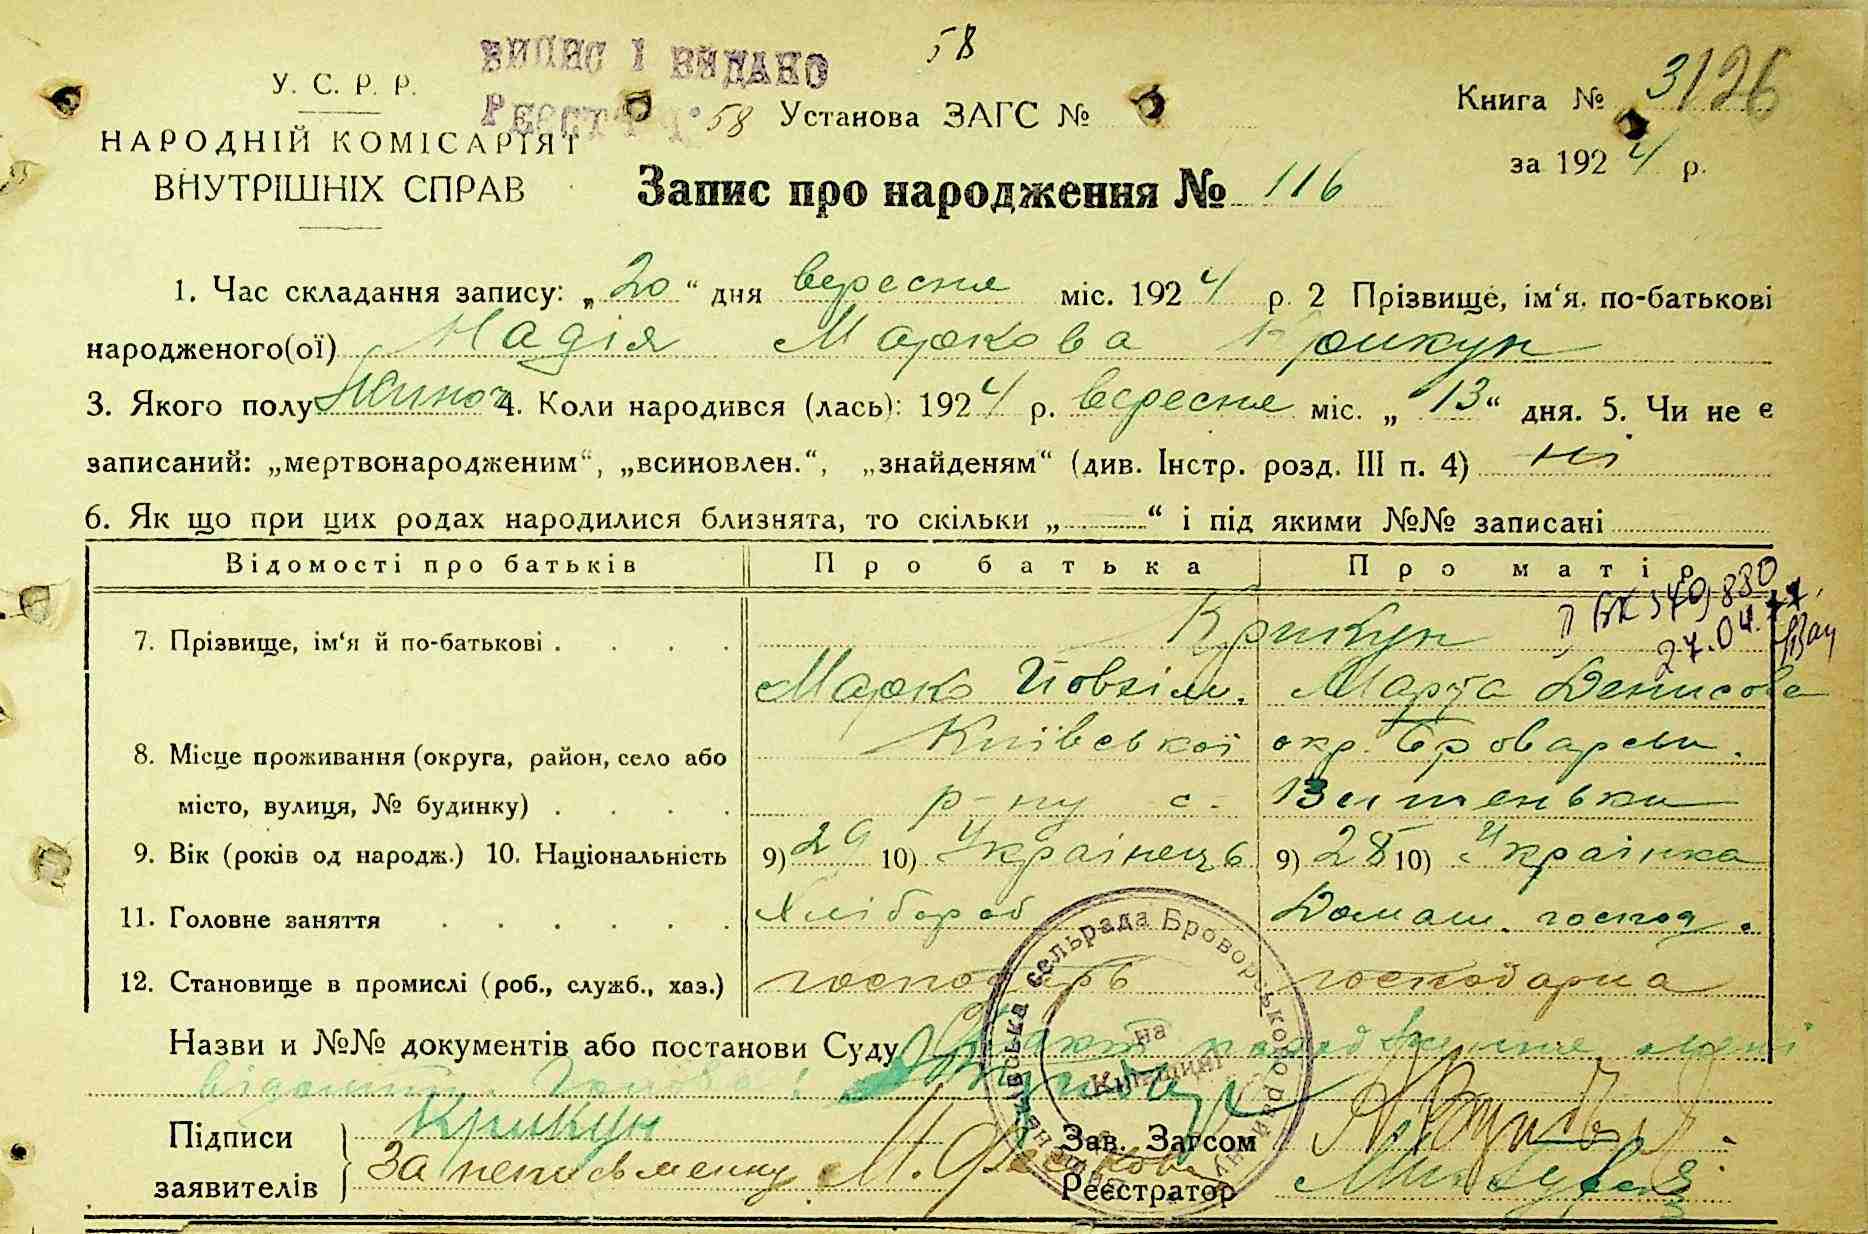 58
ВИПИС І ВИДАНО
У. С. Р. Р.
НАРОДНІЙ КОМІСАРІЯТ
ВНУТРІШНІХ СПРАВ
РЕЄСТР 58 Установа ЗАГС №
Книга № 3 126
за 1924 р.
Запис про народження № 116
1. Час складання запису: „20“ дня вересня міс. 1924 р. 2 Прізвище, ім‘я, по-батькові
народженого(ої) Надія Маркова Крикун
3. Якого полу жиноч 4. Коли народився (лась): 1924 р. вересня міс. „13“ дня. 5. Чи не є
записаний: „мертвонародженим“, „всиновлен.“, „знайденям“ (див. Інстр. розд. III п. 4) ні
6. Як що при цих родах народилися близнята, то скільки „—“ і під якими №№ записані
Відомості про батьків Про батька Про матір
ІІ БК 549830
27.04.77.
7. Прізвище, ім‘я й по-батькові . . . . Крикун
Марко Йовхім. Марта Денисова
8. Місце проживання (округа, район, село або Київської окр. Броварськ.
місто, вулиця, № будинку) . . . . р-ну с.
9. Вік (років од народж.) 10. Національність 9) 29 10) Українець 9) 28 10) Українка
11. Головне заняття . . . . . . Хлібороб Домаш. господ.
12. Становище в промислі (роб., служб., хаз.) господарь господарка
Назви и №№ документів або постанови Суду
Голова
сельрада Броворського району на Київщині
Підписи Крикун Зав. Загсом
заявителів За неписьменну М. Реєстратор